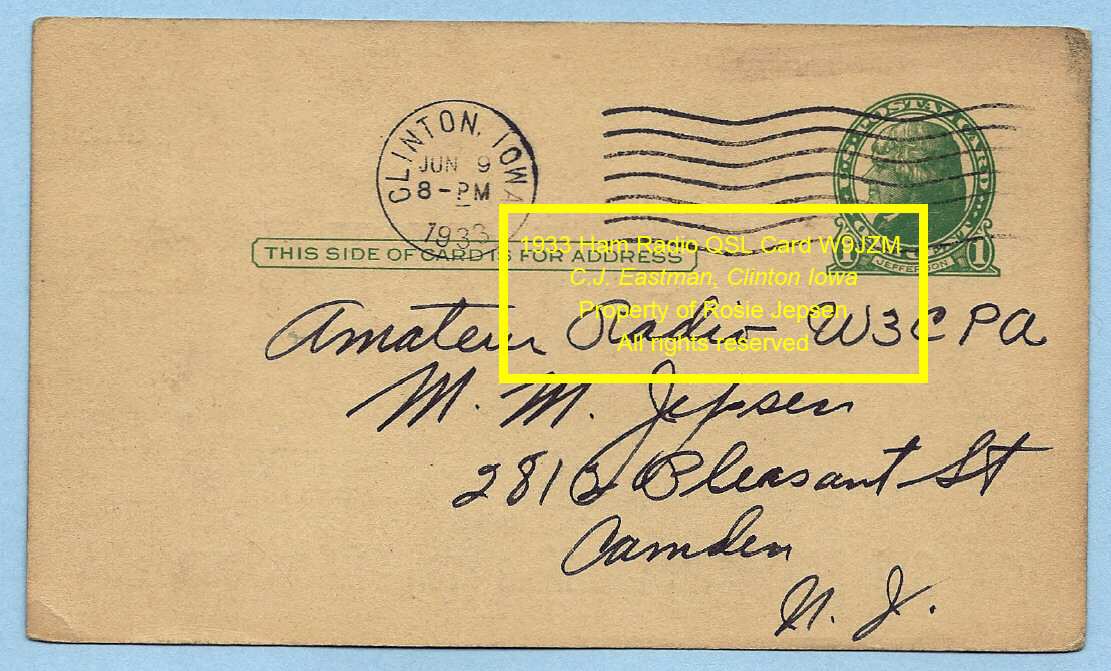 CLINTON, IOWA
JUN 9
8-PM
1933
U.S. POSTAL CARD
1 1
JEFFERSON
THIS SIDE OF CARD IS FOR ADDRESS
1933 Ham Radio QSL Card W9JZM
C.J. Eastman, Clinton Iowa
Property of Rosie Jepsen
All rights reserved
Amateur Radio W3CPA
M. M. Jepsen
2813 Pleasant St
Camden
N. J.